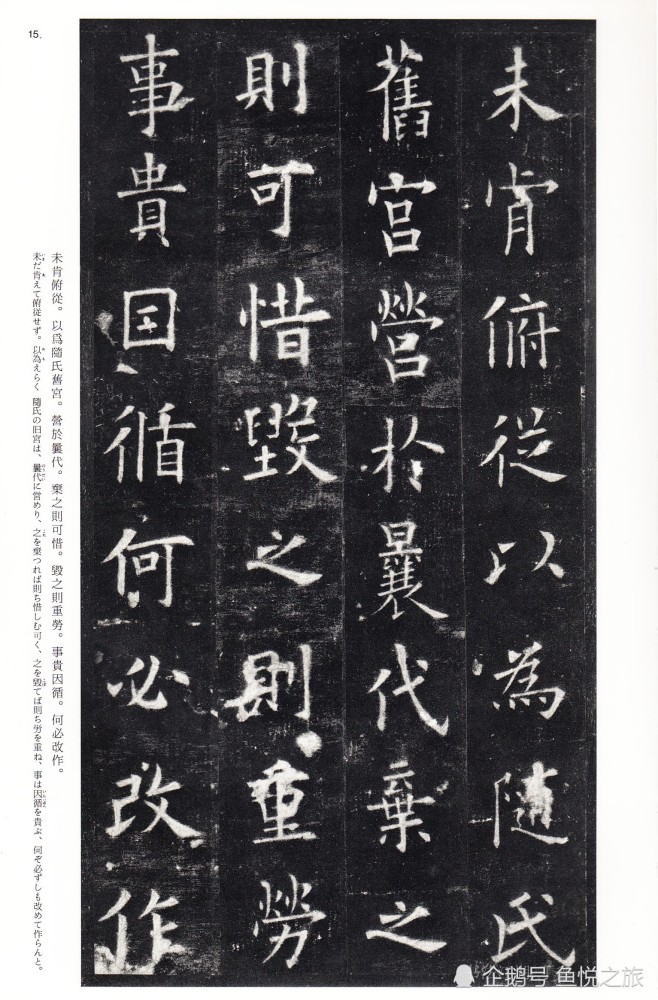 15.
未肯俯從以為隨氏
舊宮營於曩代棄之
則可惜毀之則重勞
事貴因循何必改作
未肯俯從。以爲隨氏舊宮。營於曩代。棄之則可惜。毀之則重勞。事貴因循。何必改作。
未だ肯えて俯従せず。以為えらく 隨氏の旧宮は、曩代に営めり、之を棄つれば則ち惜しむ可く、之を毀てば則ち労を重ね、事は因循を貴ぶ、何ぞ必ずしも改めて作らんと。
企鹅号 鱼悦之旅